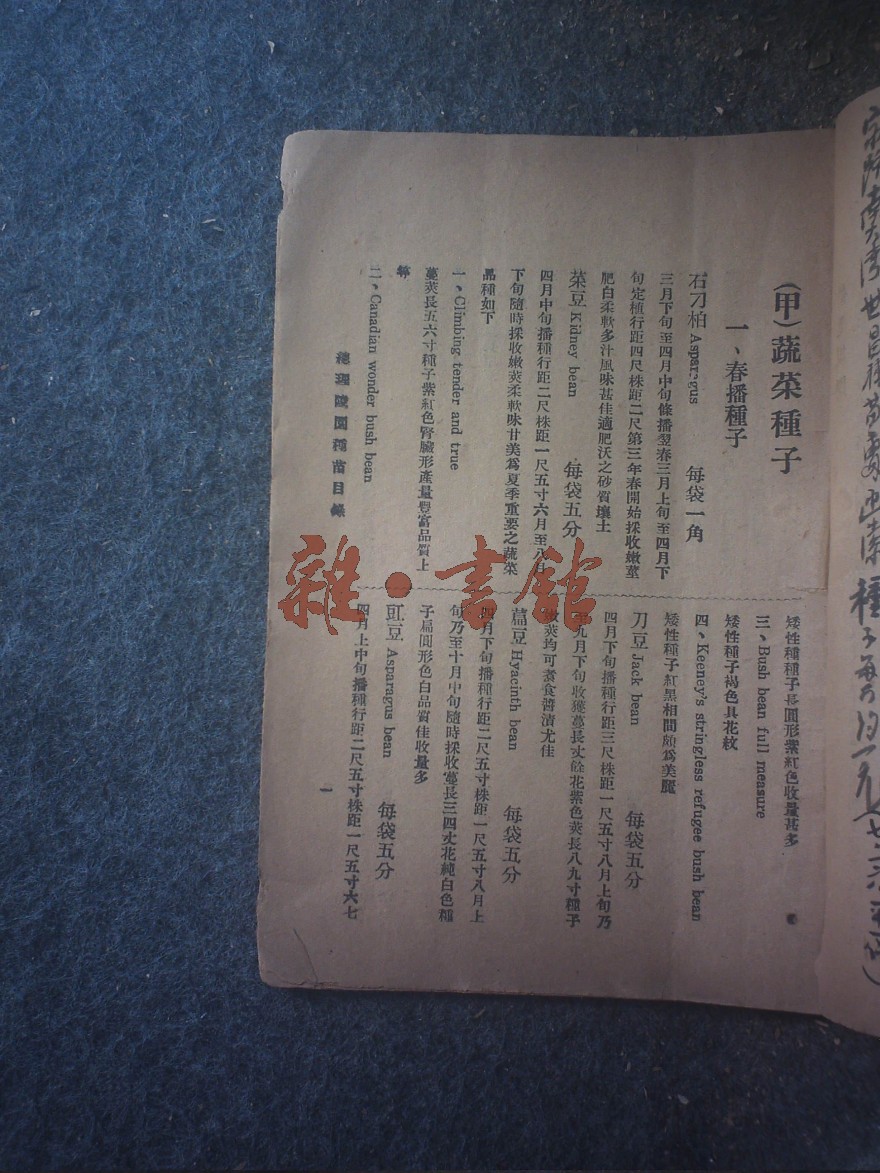 (甲)蔬菜種子
一、春播種子
石刁柏 Asparagus 每袋一角
三月下旬至四月中旬條播翌春三月上旬至四月下
旬定植行距四尺株距二尺第三年春開始採收嫩莖
肥白柔軟多汁風味甚佳適肥沃之砂質壤土
菜豆 Kidney bean 每袋五分
四月中旬播種行距二尺株距一尺五寸六月至八月
下旬隨時採收嫩莢柔軟味甘美為夏季重要之蔬菜
品種如下
一、Climbing tender and true
蔓莢長五六寸種子紫紅色腎臟形產量豐富品質上
等
二、Canadian wonder bush bean
矮性種種子長圓形紫紅色收量甚多
三、Bush bean full measure
矮性種子褐色具花紋
四、Keeney's stringless refugee bush bean
矮性種子紅黑相間頗為美麗
刀豆 Jack bean 每袋五分
四月下旬播種行距三尺株距一尺五寸八月上旬乃
至九月下旬收獲蔓長丈餘花紫色莢長八九寸種子
嫩莢均可煮食醬漬尤佳
萹豆 Hyacinth bean 每袋五分
四月下旬播種行距二尺五寸株距一尺五寸八月上
旬乃至十月中旬隨時採收蔓長三四丈花純白色種
子扁圓形色白品質佳收量多
豇豆 Asparagus bean 每袋五分
四月上中旬播種行距二尺五寸株距一尺五寸六七
總理陵園種苗目錄
一
雜·書館
種子每